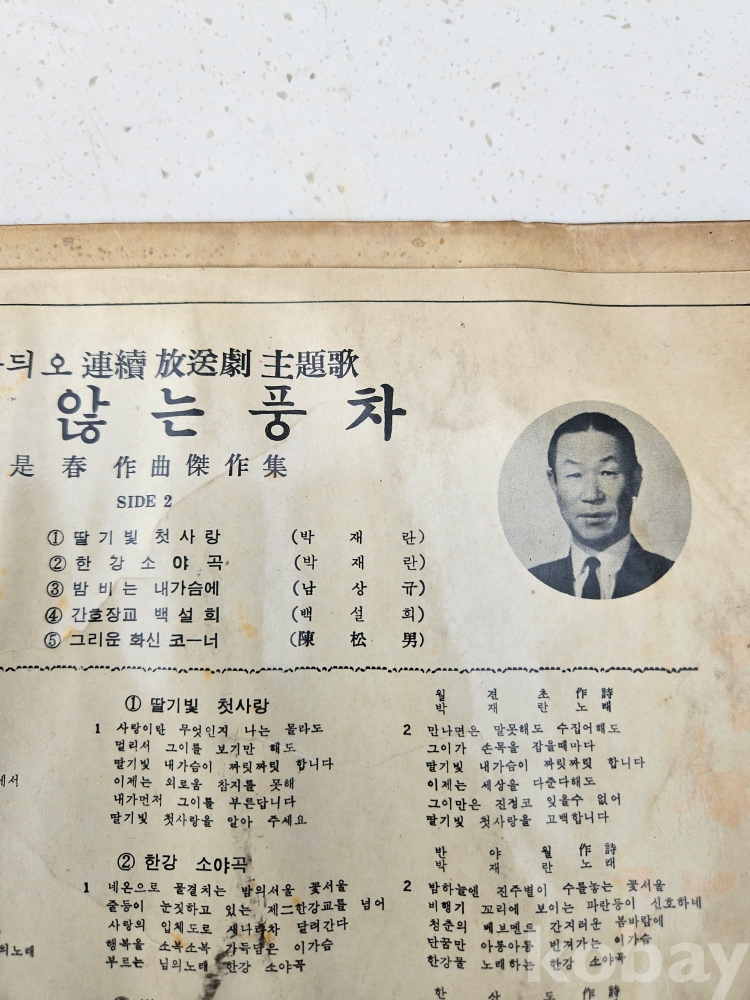 듸오 連續 放送劇 主題歌
않는 풍차
是春 作曲傑作集
SIDE 2
① 딸기빛 첫사랑 (박재란)
② 한강소야곡 (박재란)
③ 밤비는 내가슴에 (남상규)
④ 간호장교 백설희 (백설희)
⑤ 그리운 화신 코ー너 (陳松男)
① 딸기빛 첫사랑
월견초 作詩
박재란 노래
1 사랑이란 무엇인지 나는 몰라도
멀리서 그이를 보기만 해도
딸기빛 내가슴이 짜릿짜릿 합니다
이제는 외로움 참지를 못해
내가먼저 그이를 부른답니다
딸기빛 첫사랑을 알아 주세요
2 만나면은 말못해도 수집어해도
그이가 손목을 잡을때마다
딸기빛 내가슴이 짜릿짜릿 합니다
이제는 세상을 다준다해도
그이만은 진정코 잊을수 없어
딸기빛 첫사랑을 고백합니다
에서
② 한강 소야곡
반야월 作詩
박재란 노래
1 네온으로 물결치는 밤의서울 꽃서울
줄등이 눈짓하고 있는 제二한강교를 넘어
사랑의 입체도로 세나라차 달려간다
행복을 소복소복 가득담은 이가슴
부르는 님의노래 한강 소야곡
2 밤하늘엔 진주별이 수를놓는 꽃서울
비행기 꼬리에 보이는 파란등이 신호하네
청춘의 페브멘트 간지러운 봄바람에
단꿈만 아롱아롱 번져가는 이가슴
한강물 노래하는 한강 소야곡
의노래
한산도 作詩
kobay